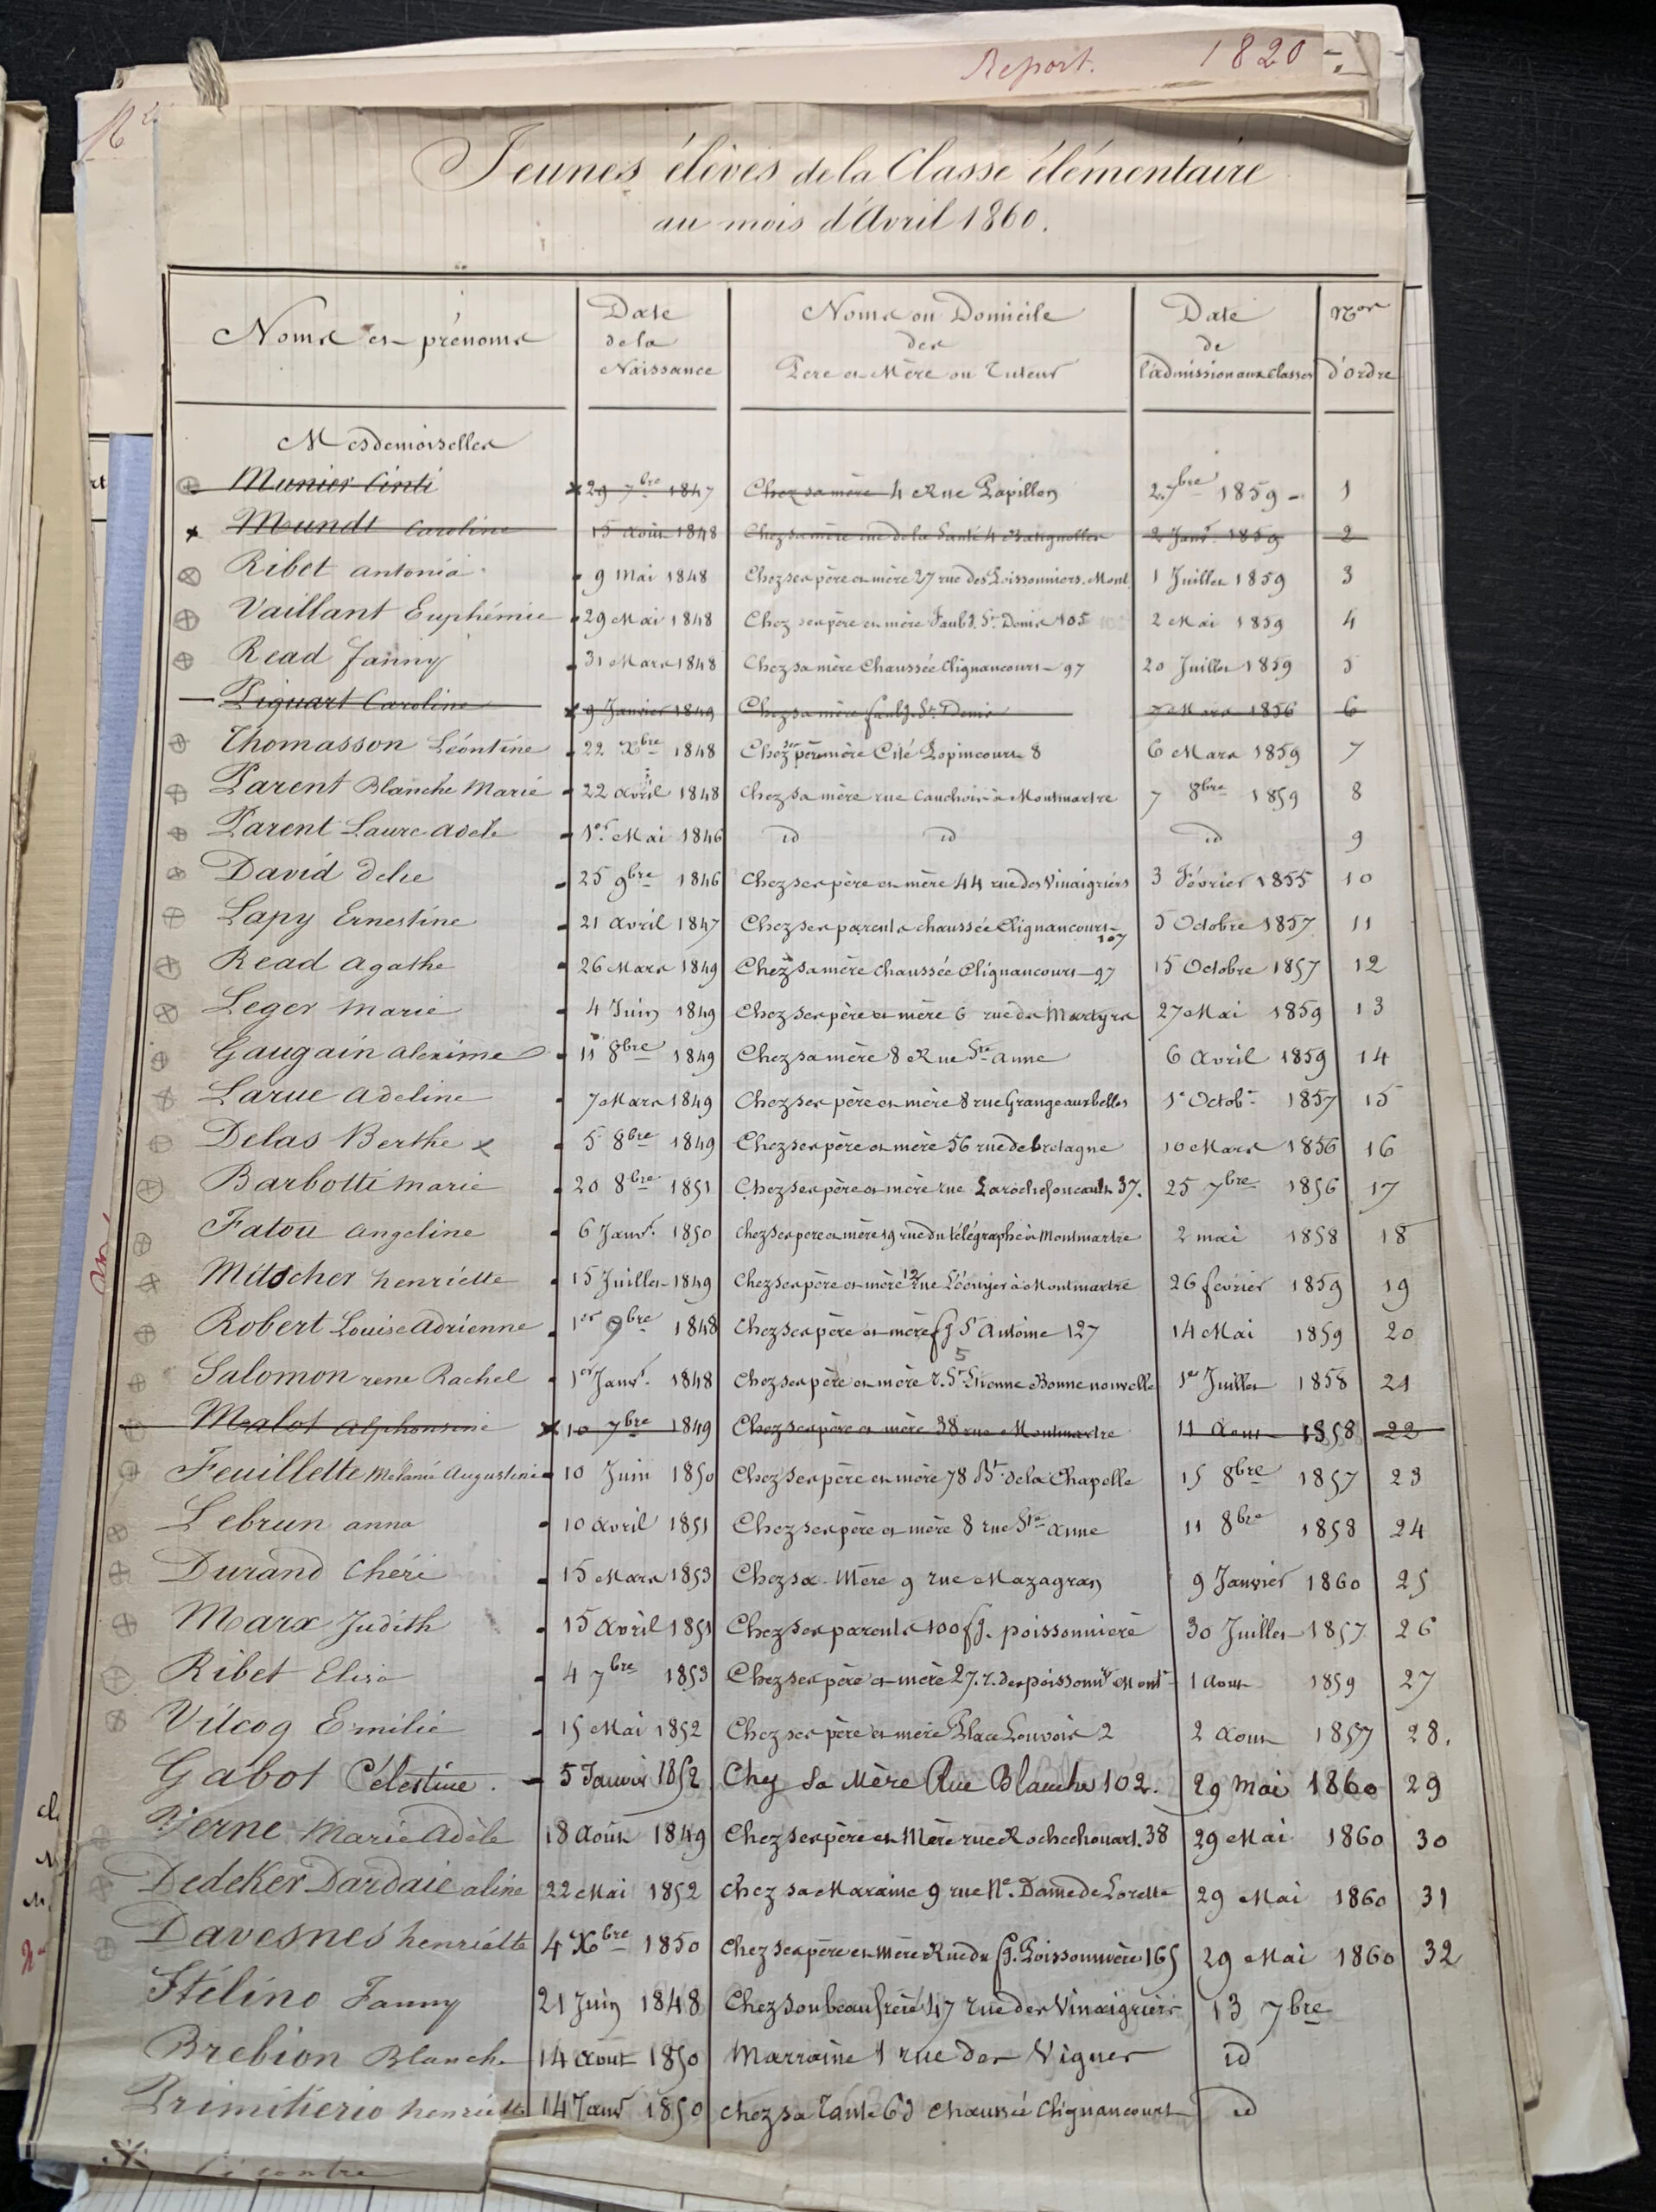 Report. 1820
Jeunes élèves de la Classe élémentaire
au mois d'Avril 1860.
Noms et prénoms
Date de la Naissance
Noms ou Domicile des Père et Mère ou Tuteur
Date de l'admission aux classes
Nos d'ordre
Mesdemoiselles
Munier Cinti 29 7bre 1847 Chez sa mère 4 Rue Papillon 2 7bre 1859 1
Mundt Caroline 15 Août 1848 Chez sa mère rue de la Santé 4 Batignolles 2 Janv. 1859 2
Ribet antonia 9 Mai 1848 Chez ses père et mère 27 rue des Poissonniers. Mont. 1 Juillet 1859 3
Vaillant Euphémie 29 Mai 1848 Chez ses père et mère Faubg. St. Denis 105 2 Mai 1859 4
Read fanny 31 Mars 1848 Chez sa mère Chaussée Clignancourt 97 20 Juillet 1859 5
Piquart Caroline 9 Janvier 1849 Chez sa mère faubg. St. Denis 7 Mars 1856 6
Thomasson Léontine 22 Xbre 1848 Chez ses père mère Cité Popincourt 8 6 Mars 1859 7
Parent Blanche Marie 22 avril 1848 Chez sa mère rue Cauchois à Montmartre 7 8bre 1859 8
Parent Laure adèle 1er Mai 1846 id id id 9
David Delie 25 9bre 1846 Chez ses père et mère 44 rue des Vinaigriers 3 Février 1855 10
Lapy Ernestine 21 avril 1847 Chez ses parents chaussée Clignancourt 107 5 Octobre 1857 11
Read agathe 26 Mars 1849 Chez sa mère chaussée Clignancourt 97 15 Octobre 1857 12
Leger marie 4 Juin 1849 Chez ses père et mère 6 rue des Martyrs 27 Mai 1859 13
Gaugain alexime 11 8bre 1849 Chez sa mère 8 Rue Ste anne 6 avril 1859 14
Larue adeline 7 Mars 1849 Chez ses père et mère 8 rue Grange aux belles 1er Octobr. 1857 15
Delas Berthe x 5 8bre 1849 Chez ses père et mère 56 rue de bretagne 10 Mars 1856 16
Barbotti marie 20 8bre 1851 Chez ses père et mère rue Larochefoucault 37. 25 7bre 1856 17
Fatou angeline 6 Janvr. 1850 chez ses père et mère 19 rue du télégraphe à Montmartre 2 mai 1858 18
Mitscher henriette 15 Juillet 1849 Chez ses père et mère 12 rue L'écuyer à Montmartre 26 fevrier 1859 19
Robert Louise adrienne 1er 9bre 1848 Chez ses père et mère fg St Antoine 127 14 Mai 1859 20
Salomon rene Rachel 1er Janvr. 1848 Chez ses père et mère r. St Etienne Bonne nouvelle 5 1er Juillet 1858 21
Malot alphonsine 10 7bre 1849 Chez ses père et mère 38 rue Montmartre 11 aout 1858 22
Feuillette Mélanie Augustine 10 Juin 1850 Chez ses père et mère 78 Bt. de la Chapelle 15 8bre 1857 23
Lebrun anna 10 avril 1851 Chez ses père et mère 8 rue Ste anne 11 8bre 1858 24
Durand Chéri 15 Mars 1853 Chez sa Mère 9 rue Mazagran 9 Janvier 1860 25
Marx Judith 15 avril 1851 Chez ses parents 100 fg. poissonnière 30 Juillet 1857 26
Ribet Elisa 4 7bre 1853 Chez ses père et mère 27. r. des poissonrs Mont 1 aout 1859 27
Vilcoq Emilie 15 Mai 1852 Chez ses père et mère Place Louvois 2 2 aout 1857 28.
Gabot Célestine. 5 Janvier 1852 Chez sa Mère Rue Blanche 102. 29 Mai 1860 29
Verne Marie Adèle 18 Août 1849 Chez ses père et Mère rue Rochechouart. 38 29 Mai 1860 30
Dedeker Dardaie aline 22 Mai 1852 chez sa Maraine 9 rue Ne. Dame de Lorette 29 Mai 1860 31
Davesnes henriette 4 Xbre 1850 chez ses père et mère Rue du fg. Poissonnière 165 29 Mai 1860 32
Stélino Fanny 21 Juin 1848 Chez son beau frère 47 rue des Vinaigriers 13 7bre
Brebion Blanche 14 Aout 1850 Marraine 1 rue des Vignes id
Primitierio henriette 14 Janvr 1850 chez sa Tante 63 chaussée Clignancourt id